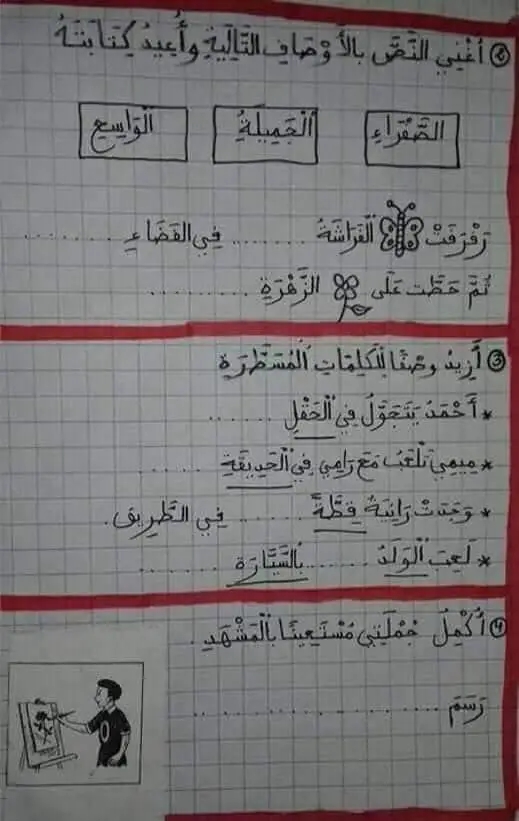 ② أُغْنِي النَّصَّ بالأَوْصَافِ التَّالِيَةِ وأُعِيدُ كِتَابَتَهُ
الصَّفْرَاءِ الْجَمِيلَةُ الْوَاسِعِ
رَفْرَفَتْ الْفَرَاشَةُ ........ فِي الفَضَاءِ ........
ثُمَّ حَطَّت عَلَى الزَّهْرَةِ ........
③ أَزِيدُ وصْفًا لِلْكَلِمَاتِ الْمُسَطَّرَةِ
* أَحْمَدُ يَتَجَوَّلُ فِي الْحَقْلِ ........
* مِيمِي تَلْعَبُ مَعَ رَامِي فِي الْحَدِيقَةِ ......
* وَجَدَتْ رَانِيَةُ قِطَّةً ........ فِي الطَّرِيقِ.
* لَعِبَ الْوَلَدُ ........ بِالسَّيَّارَةِ ........
④ أُكْمِلُ جُمْلَتِي مُسْتَعِينًا بِالْمَشْهَدِ.
رَسَمَ ........................